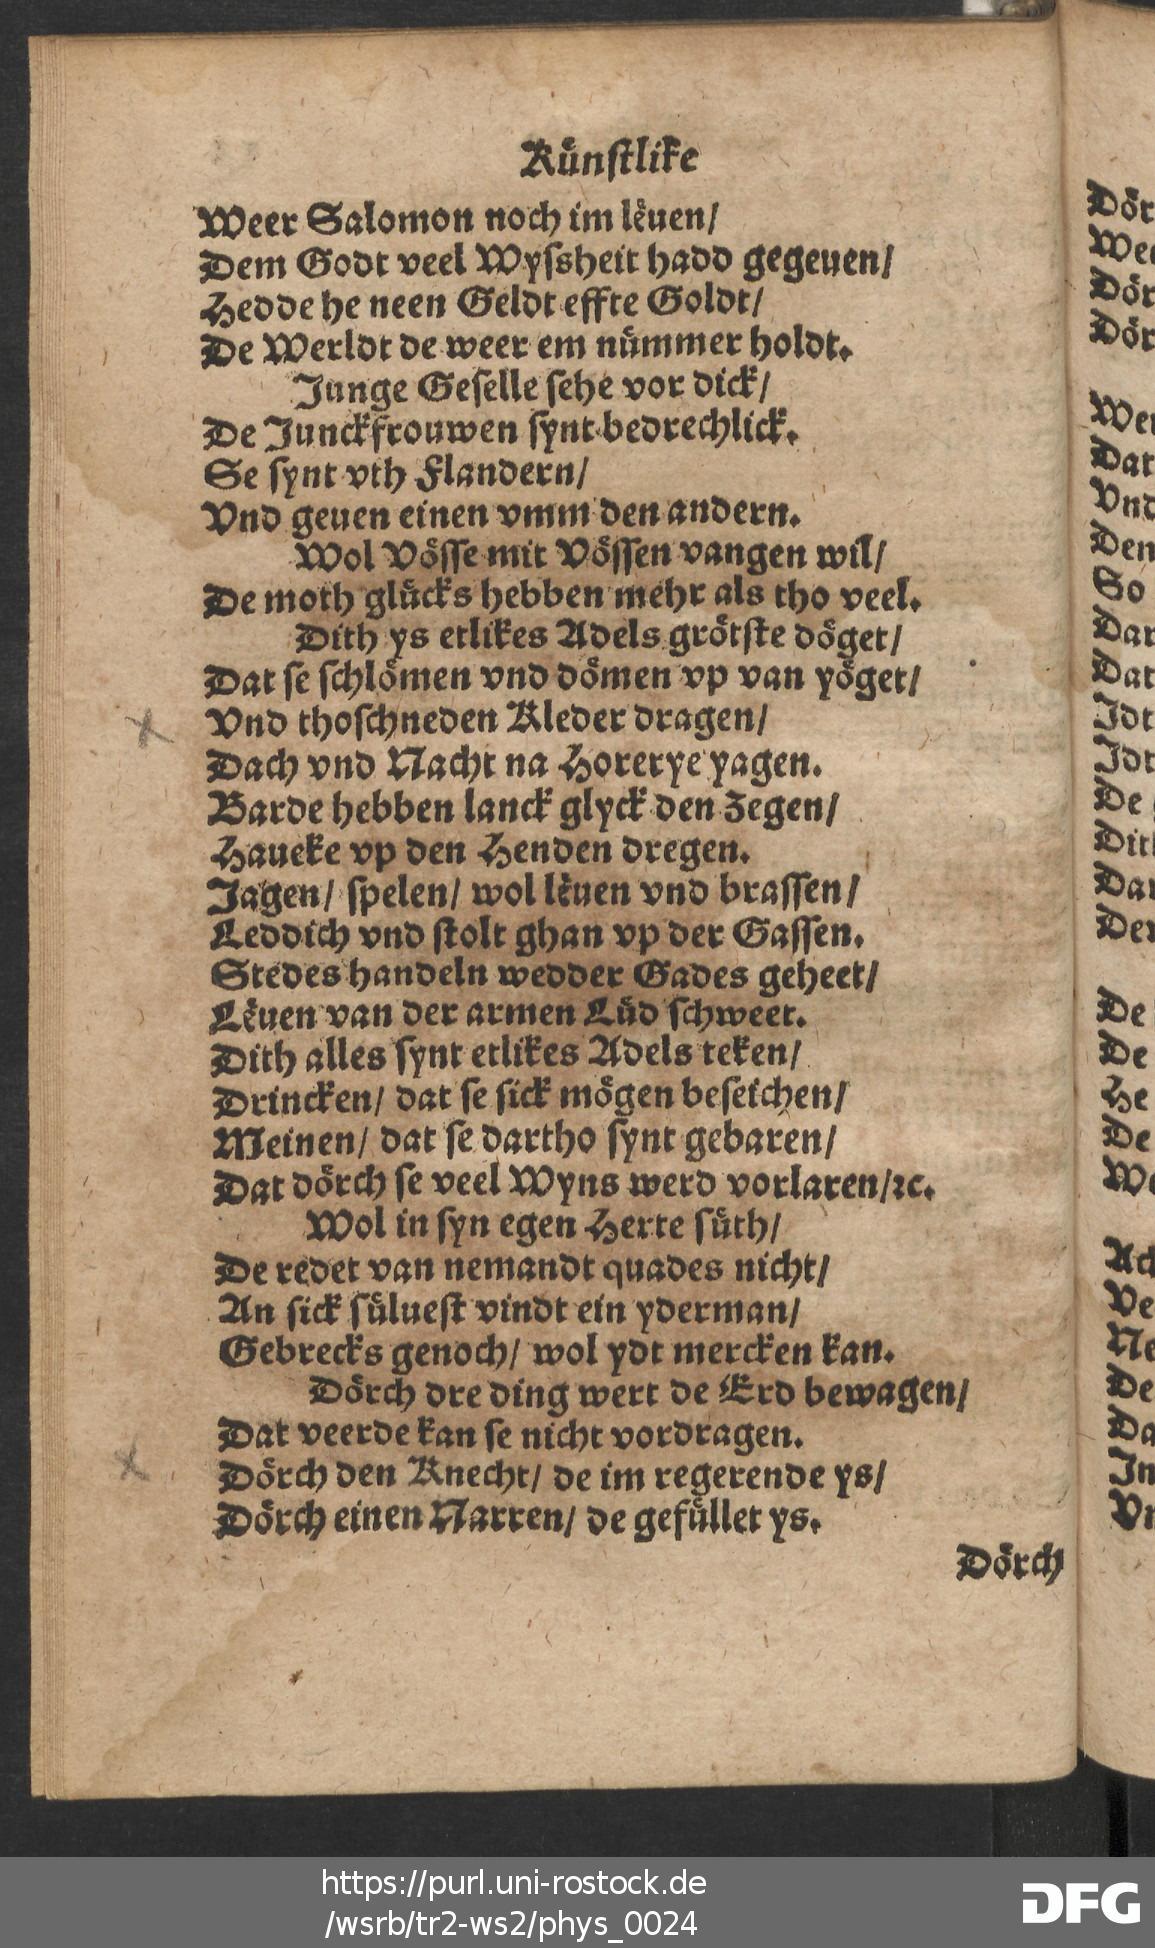 Kuͤnſtlike
Weer Salomon noch im leͤuen/
Dem Godt veel Wyſsheit hadd gegeuen/
Hedde he neen Geldt effte Goldt/
De Werldt de weer em nuͤmmer holdt.
Junge Geſelle ſehe vor dick/
De Junckfrouwen ſynt bedrechlick.
Se ſynt vth Flandern/
Vnd geuen einen vmm den andern.
Wol Voͤſſe mit Voͤſſen vangen wil/
De moth gluͤcks hebben mehr als tho veel.
Dith ys etlikes Adels groͤtſte doͤget/
Dat ſe ſchloͤmen vnd doͤmen vp van yoͤget/
Vnd thoſchneden Kleder dragen/
Dach vnd Nacht na Horerye yagen.
Barde hebben lanck glyck den Zegen/
Haueke vp den Henden dregen.
Jagen/ ſpelen/ wol leͤuen vnd braſſen/
Leddich vnd ſtolt ghan vp der Gaſſen.
Stedes handeln wedder Gades geheet/
Leͤuen van der armen Luͤd ſchweet.
Dith alles ſynt etlikes Adels teken/
Drincken/ dat ſe ſick moͤgen beſeichen/
Meinen/ dat ſe dartho ſynt gebaren/
Dat doͤrch ſe veel Wyns werd vorlaren/ꝛc.
Wol in ſyn egen Herte ſuͤth/
De redet van nemandt quades nicht/
An ſick ſuͤlueſt vindt ein yderman/
Gebrecks genoch/ wol ydt mercken kan.
Doͤrch dre ding wert de Erd bewagen/
Dat veerde kan ſe nicht vordragen.
Doͤrch den Knecht/ de im regerende ys/
Doͤrch einen Narren/ de gefuͤllet ys.
Doͤrch
https://purl.uni-rostock.de
/wsrb/tr2-ws2/phys_0024
DFG